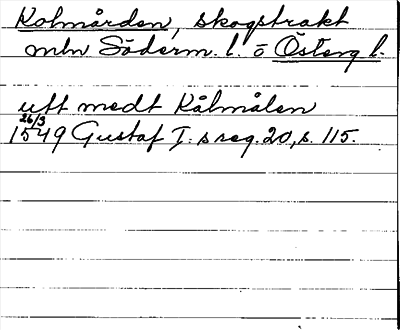 Kolmården, skogstrakt
mln Söderm. l. o Östergl.
utt medt Kålmålen
26/3
1549 Gustaf I:s reg. 20, s. 115.